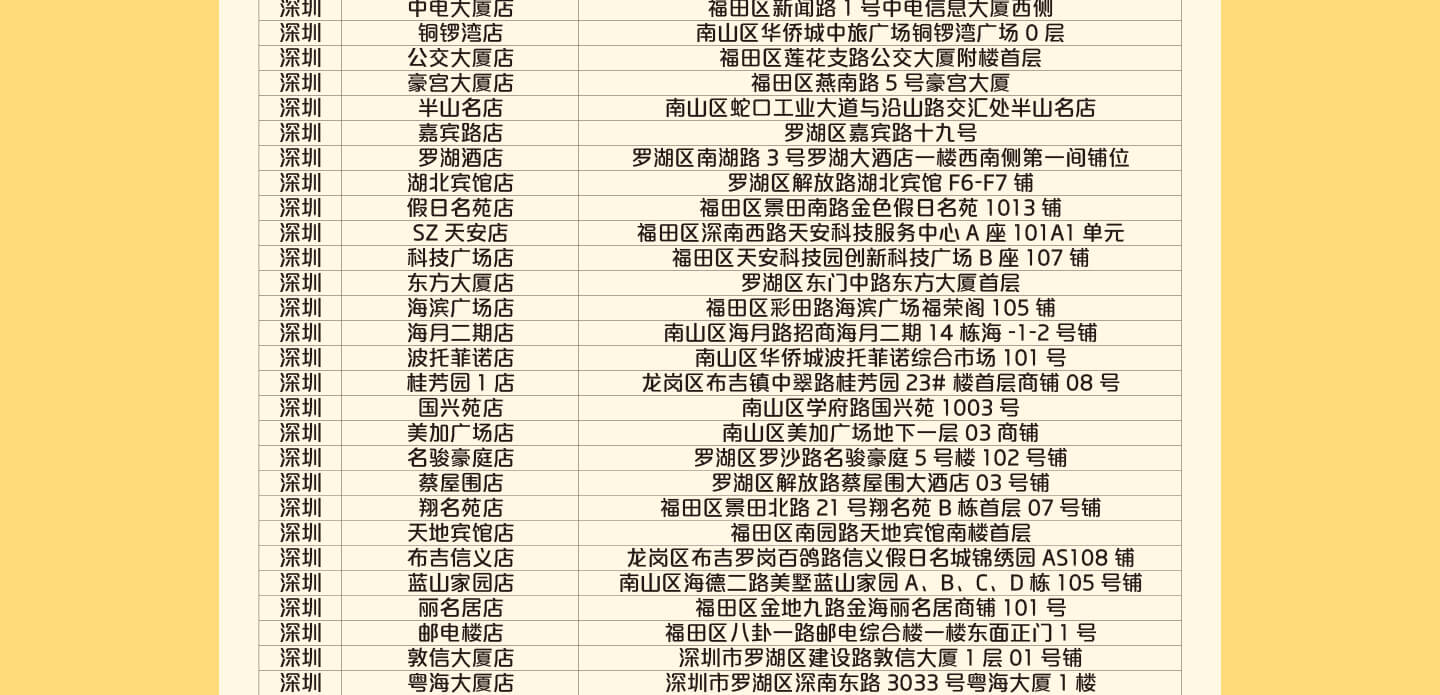 深圳 中电大厦店 福田区新闻路 1 号中电信息大厦西侧
深圳 铜锣湾店 南山区华侨城中旅广场铜锣湾广场 0 层
深圳 公交大厦店 福田区莲花支路公交大厦附楼首层
深圳 豪宫大厦店 福田区燕南路 5 号豪宫大厦
深圳 半山名店 南山区蛇口工业大道与沿山路交汇处半山名店
深圳 嘉宾路店 罗湖区嘉宾路十九号
深圳 罗湖酒店 罗湖区南湖路 3 号罗湖大酒店一楼西南侧第一间铺位
深圳 湖北宾馆店 罗湖区解放路湖北宾馆 F6-F7 铺
深圳 假日名苑店 福田区景田南路金色假日名苑 1013 铺
深圳 SZ 天安店 福田区深南西路天安科技服务中心 A 座 101A1 单元
深圳 科技广场店 福田区天安科技园创新科技广场 B 座 107 铺
深圳 东方大厦店 罗湖区东门中路东方大厦首层
深圳 海滨广场店 福田区彩田路海滨广场福荣阁 105 铺
深圳 海月二期店 南山区海月路招商海月二期 14 栋海 -1-2 号铺
深圳 波托菲诺店 南山区华侨城波托菲诺综合市场 101 号
深圳 桂芳园 1 店 龙岗区布吉镇中翠路桂芳园 23# 楼首层商铺 08 号
深圳 国兴苑店 南山区学府路国兴苑 1003 号
深圳 美加广场店 南山区美加广场地下一层 03 商铺
深圳 名骏豪庭店 罗湖区罗沙路名骏豪庭 5 号楼 102 号铺
深圳 蔡屋围店 罗湖区解放路蔡屋围大酒店 03 号铺
深圳 翔名苑店 福田区景田北路 21 号翔名苑 B 栋首层 07 号铺
深圳 天地宾馆店 福田区南园路天地宾馆南楼首层
深圳 布吉信义店 龙岗区布吉罗岗百鸽路信义假日名城锦绣园 AS108 铺
深圳 蓝山家园店 南山区海德二路美墅蓝山家园 A、B、C、D 栋 105 号铺
深圳 丽名居店 福田区金地九路金海丽名居商铺 101 号
深圳 邮电楼店 福田区八卦一路邮电综合楼一楼东面正门 1 号
深圳 敦信大厦店 深圳市罗湖区建设路敦信大厦 1 层 01 号铺
深圳 粤海大厦店 深圳市罗湖区深南东路 3033 号粤海大厦 1 楼